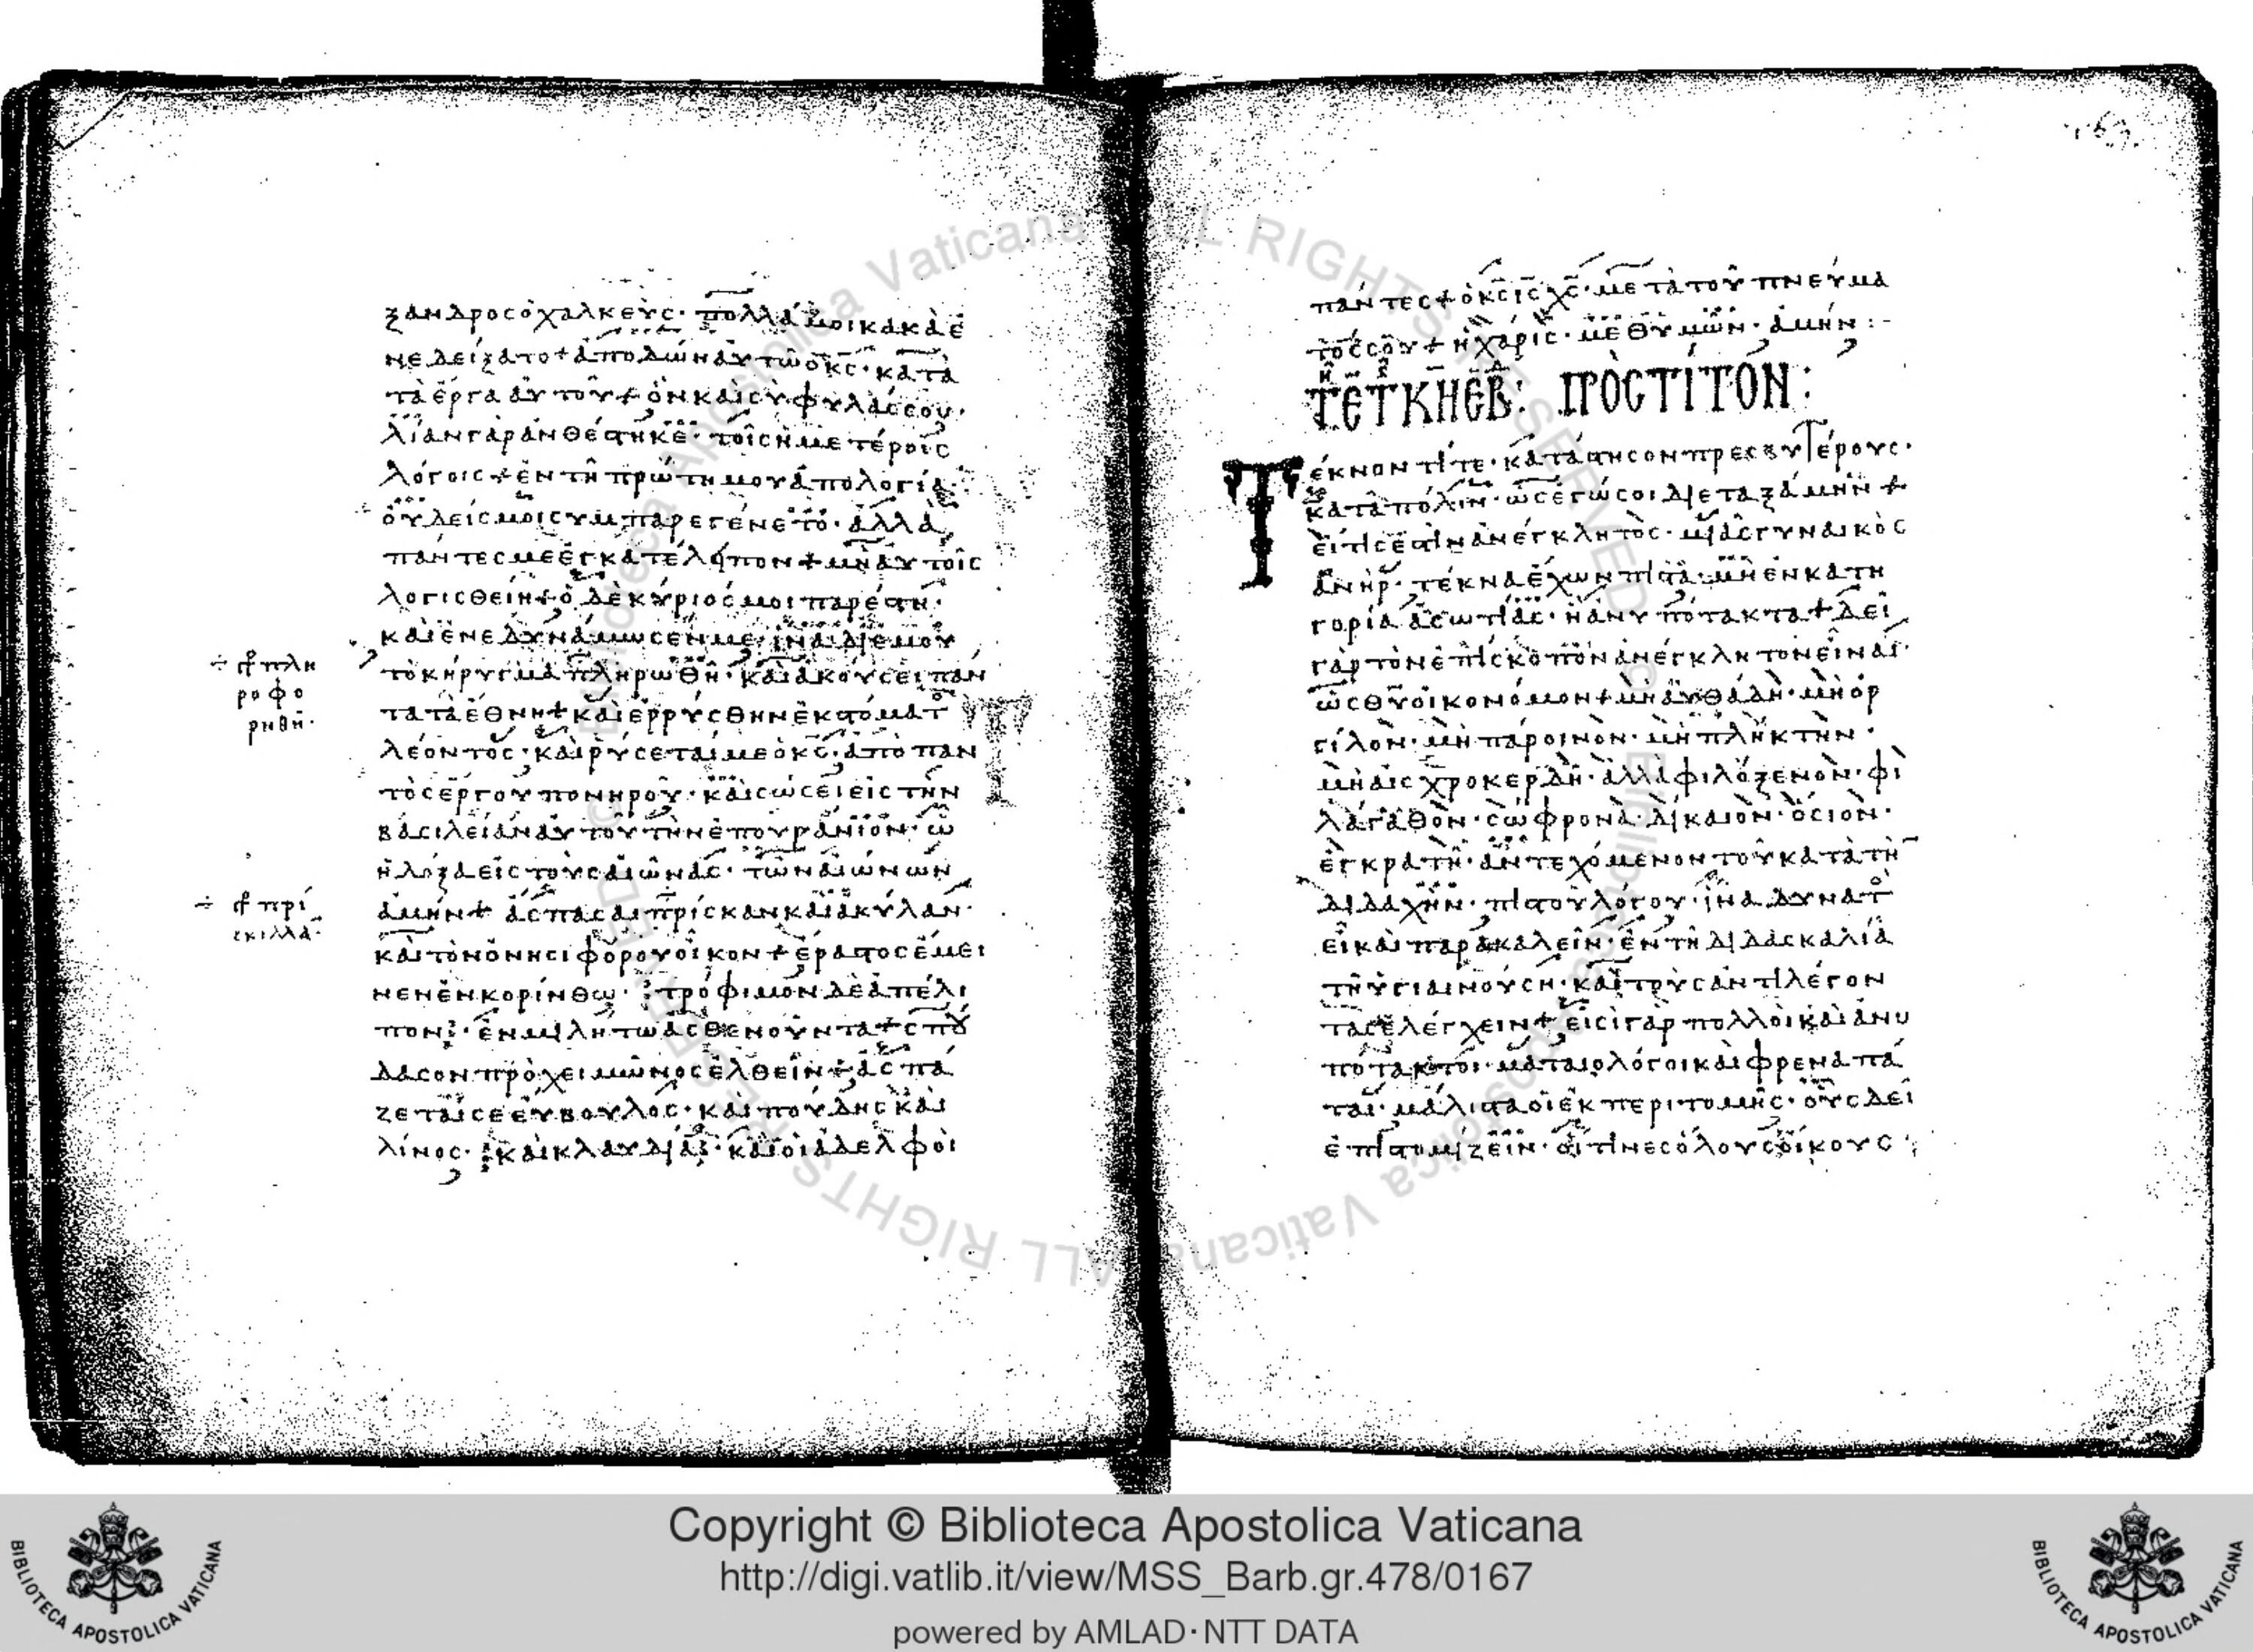 ξανδρος ὁ χαλκεὺς· πολλά μοι κακὰ ἐ
νεδείξατο + ἀποδώη αὐτῶ ὁ κς· κατὰ
τὰ ἔργα αὐτοῦ + ὃν καὶ σὺ φυλάσσου·
λίαν γὰρ ἀνθέστηκε· τοῖς ἡμετέροις
λόγοις + ἐν τῆ πρώτη μου ἀπολογία·
οὐδείς μοι συμπαρεγένετο· ἀλλὰ
πάντες με ἐγκατέλιπον + μὴ αὐτοῖς
λογισθείη + ὁ δὲ κύριός μοι παρέστη·
καὶ ἐνεδυνάμωσέν με· ἵνα δι ἐμοῦ
τὸ κήρυγμα πληρωθῆ· καὶ ἀκούσει πάν
τα τὰ ἔθνη + καὶ ἐρρύσθην ἐκ στόματ
λέοντος· καὶ ῥύσεταί με ὁ κς· ἀπὸ παν
τὸς ἔργου πονηροῦ· καὶ σώσει εἰς τὴν
βασιλείαν αὐτοῦ τὴν ἐπουράνιον· ὧ
ἡ δόξα εἰς τοὺς αἰῶνας· τῶν αἰώνων
ἀμήν + ἄσπασαι πρίσκαν καὶ ἀκύλαν·
καὶ τὸν ὀνησιφόρου οἶκον + ἔραστος ἔμει
νεν ἐν κορίνθω· τρόφιμον δὲ ἀπέλι
πον· ἐν μιλήτω ἀσθενοῦντα + σπού
δασον πρὸ χειμῶνος ἐλθεῖν + ἀσπά
ζεταί σε εὔβουλος· καὶ πούδης καὶ
λίνος· καὶ κλαυδία· καὶ οἱ ἀδελφοὶ
πλη
ροφο
ρηθῆ·
πρί
σκιλλα·
πάντες + ὁ κς ις χς· μετὰ τοῦ πνεύμα
τός σου + ἡ χάρις· μεθ ὑμῶν· ἀμήν :-
ΠΡῸΣ ΤΊΤΟΝ :
Τέκνον τίτε· κατάστησον πρεσβυτέρους·
κατὰ πόλιν· ὡς ἐγώ σοι διεταξάμην +
εἴ τίς ἐστιν ἀνέγκλητος· μιᾶς γυναικὸς
ἀνὴρ· τέκνα ἔχων πιστὰ· μὴ ἐν κατη
γορία ἀσωτίας· ἢ ἀνυπότακτα + δεῖ
γὰρ τὸν ἐπίσκοπον ἀνέγκλητον εἶναι·
ὡς θυ οἰκονόμον + μὴ αὐθάδη· μὴ ὀρ
γίλον· μὴ πάροινον· μὴ πλήκτην·
μὴ αἰσχροκερδῆ· ἀλλὰ φιλόξενον· φι
λάγαθον· σώφρονα· δίκαιον· ὅσιον·
ἐγκρατῆ· ἀντεχόμενον τοῦ κατὰ τὴ
διδαχὴν· πιστοῦ λόγου· ἵνα δυνατ
εἶ καὶ παρακαλεῖν· ἐν τῆ διδασκαλία
τῆ ὑγιαινούση· καὶ τοὺς ἀντιλέγον
τας ἐλέγχειν + εἰσὶ γὰρ πολλοὶ καὶ ἀνυ
πότακτοι· ματαιολόγοι καὶ φρεναπά
ται· μάλιστα οἱ ἐκ περιτομῆς· οὓς δεῖ
ἐπιστομίζειν· οἵτινες ὅλους οἴκους·
Copyright © Biblioteca Apostolica Vaticana
http://digi.vatlib.it/view/MSS_Barb.gr.478/0167
powered by AMLAD·NTT DATA
BIBLIOTECA APOSTOLICA VATICANA
BIBLIOTECA APOSTOLICA VATICANA